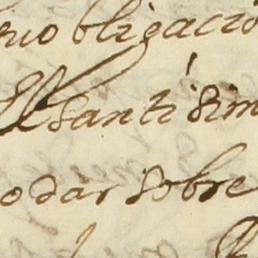 obligacio
El santisim
o dar sobre